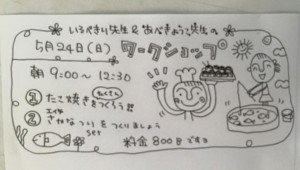 いろやきり先生&あべきょうこ先生の
5月24日(日) ワークショップ
朝 9:00〜12:30
1 たこ焼きをつくろう!!
たくさん
2 エ作 さかなつりをつくりましょう
set
料金800円です